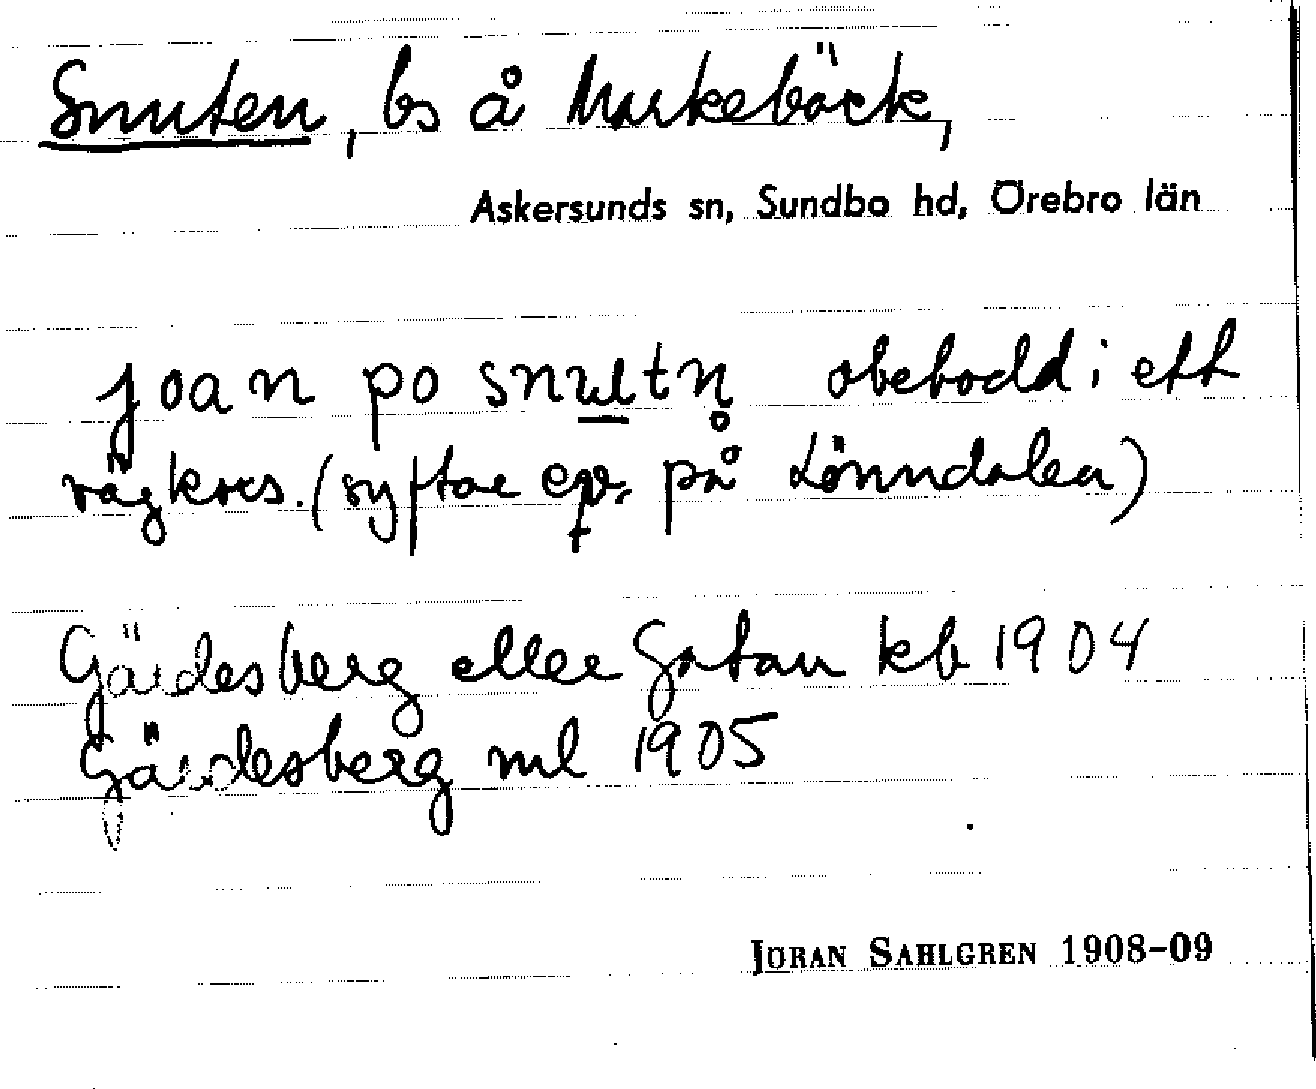 Snuten, bs å Markebäck,
Askersunds sn, Sundbo hd, Örebro län
joan po snutn̥ obebodd i ett
vägkors. (syftar på Lönndalen)
Gärdesberg eller Gatan kb 1904
Gärdesberg ml 1905
JÖRAN SAHLGREN 1908-09